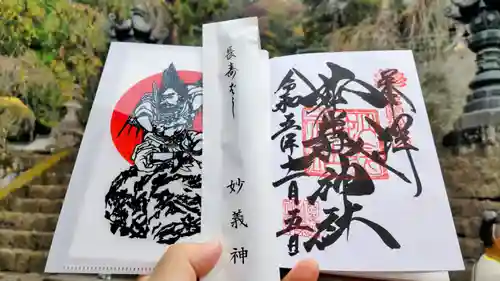 長寿はし
妙義神
奉拝
妙義神社
令和五年十一月五日